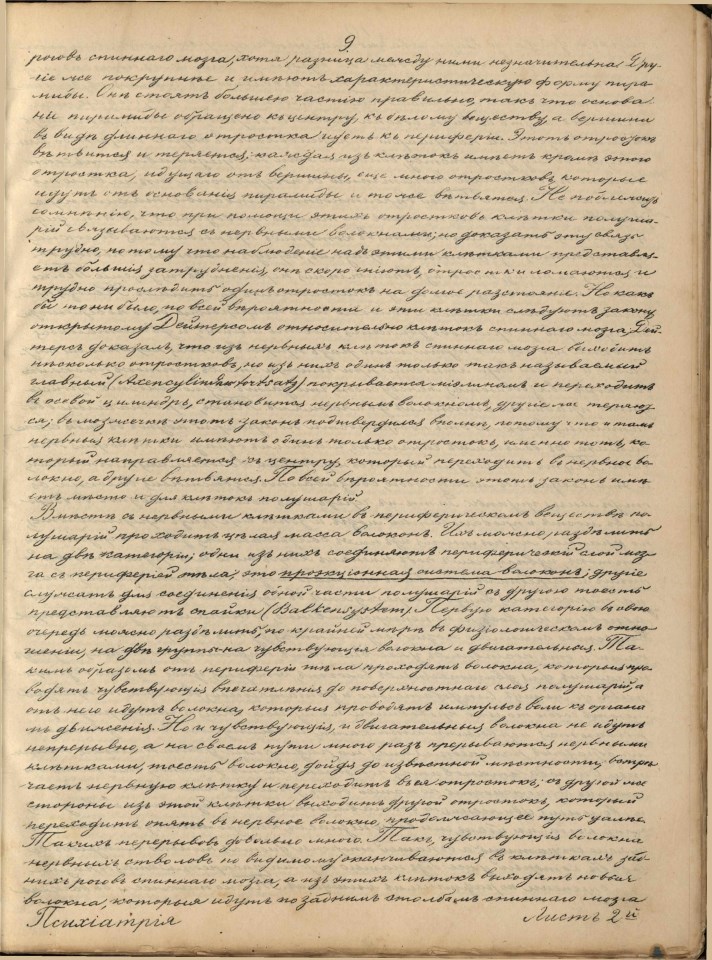 9.
роговъ спиннаго мозга, хотя разница между ними незначительна. Дру-
гіе же покрупнѣе и имѣютъ характеристическую форму пира-
миды. Онѣ стоятъ большею частію правильно, такъ что основа-
ніе пирамиды обращено къ центру, къ бѣлому веществу, а вершина
въ видѣ длиннаго отростка идетъ къ периферіи. Этотъ отростокъ
вѣтвится и теряется; каждая изъ клѣтокъ имѣетъ кромѣ этого
отростка, идущаго отъ вершины, еще много отростковъ, которые
идутъ отъ основанія пирамиды и тоже вѣтвятся. Не подлежитъ
сомнѣнію, что при помощи этихъ отростковъ клѣтки полуша-
рій связываются съ нервными волокнами; но доказать эту связь
трудно, потому что наблюденіе надъ этими клѣтками представля-
етъ большія затрудненія, онѣ скоро гніютъ, отростки ломаются и
трудно прослѣдить одинъ отростокъ на долгое разстояніе. Но какъ
бы то ни было, по всей вѣроятности и эти клѣтки слѣдуютъ закону
открытому Дейтерсомъ относительно клѣтокъ спиннаго мозга. Дей-
терсъ доказалъ, что изъ нервныхъ клѣтокъ спиннаго мозга выходитъ
нѣсколько отростковъ, но изъ нихъ одинъ только такъ называемый
главный (Axencylinderfortsatz) покрывается міэлиномъ и переходитъ
въ осевой цилиндръ, становится нервнымъ волокномъ, другіе же теряют-
ся; въ мозжечкѣ этотъ законъ подтвердился вполнѣ, потому что и тамъ
нервныя клѣтки имѣютъ одинъ только отростокъ, именно тотъ, ко-
торый направляется къ центру, который переходитъ въ нервное во-
локно, а другіе вѣтвятся. По всей вѣроятности этотъ законъ имѣ-
етъ мѣсто и для клѣтокъ полушарій.
Вмѣстѣ съ нервными клѣтками въ периферическомъ веществѣ по-
лушарій проходитъ цѣлая масса волоконъ. Ихъ можно раздѣлить
на двѣ категоріи; одни изъ нихъ соединяютъ периферическій слой моз-
га съ периферіей тѣла, это проэкціонная система волоконъ; другіе
служатъ для соединенія одной части полушарій съ другою тоесть
представляютъ спайки (Balkensystem). Первую категорію въ свою
очередь можно раздѣлить, по крайней мѣрѣ въ физіологическомъ отно-
шеніи, на двѣ группы: на чувствующія волокна и двигательныя. Та-
кимъ образомъ отъ периферіи тѣла проходятъ волокна, которыя про-
водятъ чувствующія впечатлѣнія до поверхностнаго слоя полушарій, а
отъ него идутъ волокна, которыя проводятъ импульсъ воли къ органа-
мъ движенія. Но и чувствующія, и двигательныя волокна не идутъ
непрерывно, а на своемъ пути много разъ прерываются нервными
клѣтками, тоесть волокно, дойдя до извѣстной мѣстности, встрѣ-
чаетъ нервную клѣтку и переходитъ въ ея отростокъ; съ другой же
стороны изъ этой клѣтки выходитъ другой отростокъ, который
переходитъ опять въ нервное волокно, продолжающее путь далѣе.
Такихъ перерывовъ довольно много. Такъ, чувствующія волокна
нервныхъ стволовъ по видимому оканчиваются въ клѣткахъ зад-
нихъ роговъ спиннаго мозга, а изъ этихъ клѣтокъ выходятъ новыя
волокна, которыя идутъ по заднимъ столбамъ спиннаго мозга
Психіатрія Листъ 2й